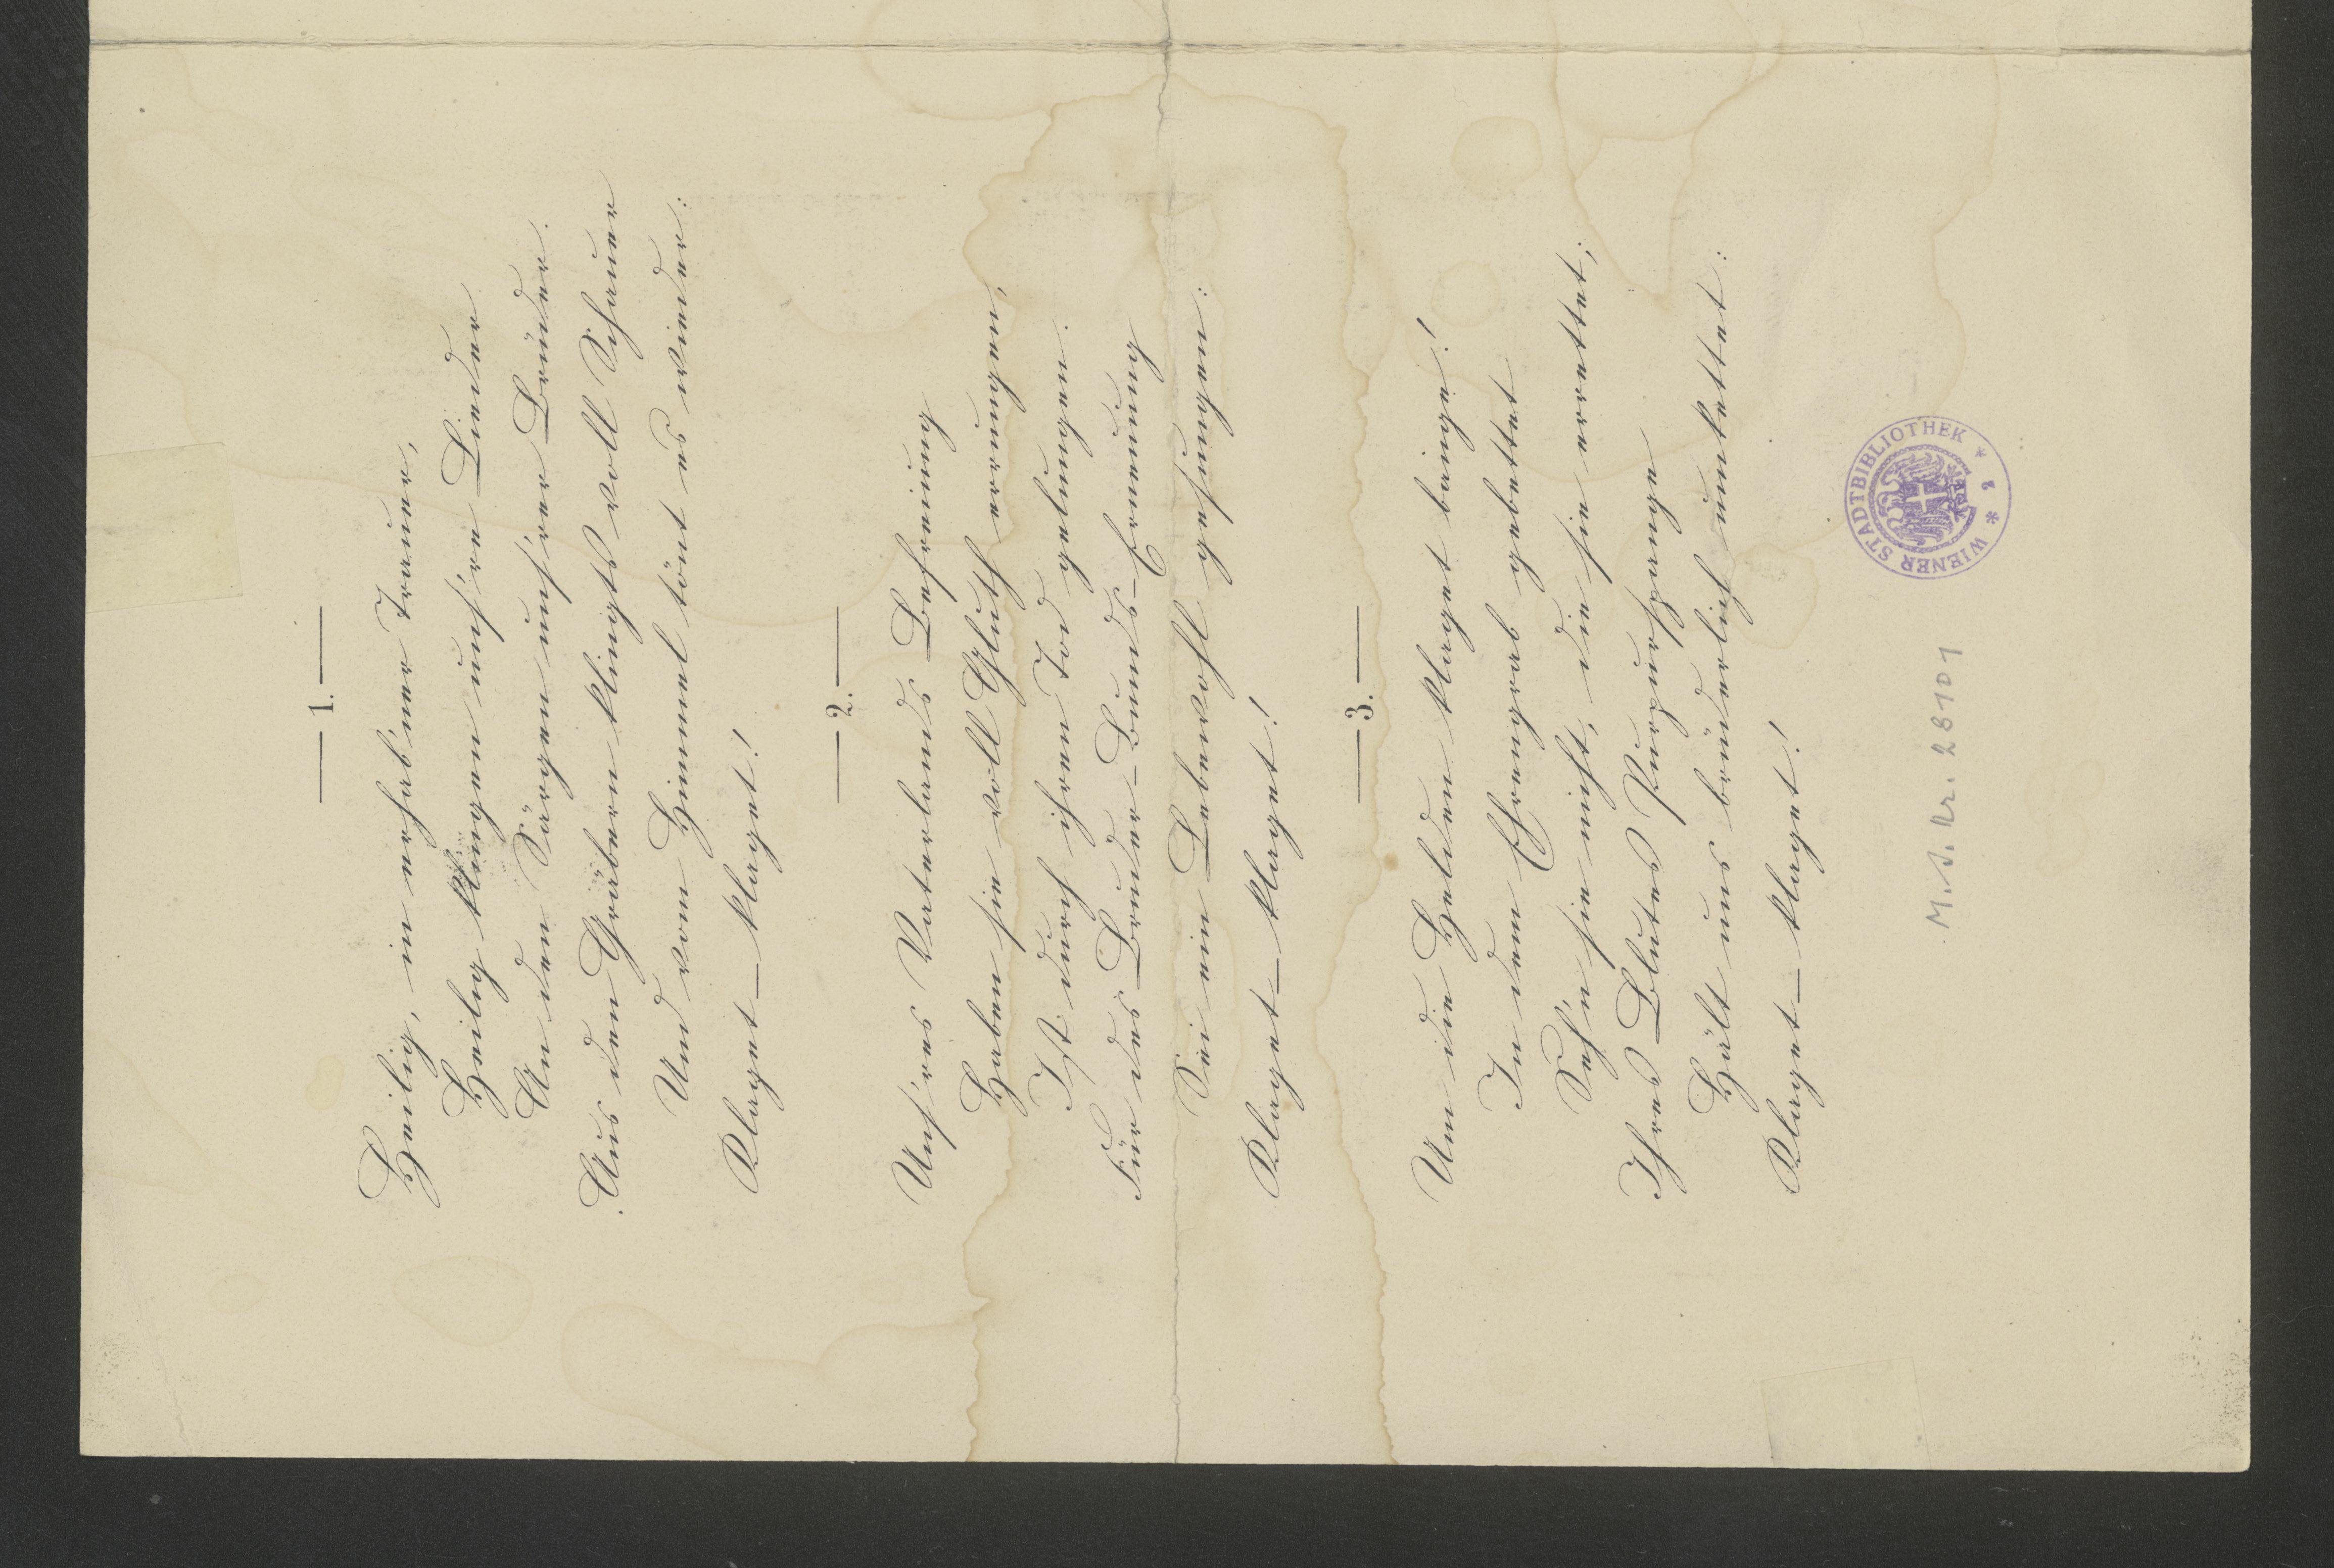 — 1. —
Heilig, in erhab'ner Trauer,
Heilig klingen uns're Lieder
An den Särgen uns'rer Brüder.
Aus den Gräbern klingts voll Schauer
Und vom Himmel tönt es wieder:
Klaget – klaget!
— 2. —
Uns'res Vaterlands Befreiung
Haben sie voll Gluth errungen,
Ist durch ihren Tod gelungen.
Für des Bruder-Bunds-Erneuung
Sei ein Lebewohl gesungen:
Klaget – klaget!
— 3. —
Um die Helden klaget bange!
In dem Ehrengrab gebettet
Seh'n sie nicht, die sie errettet;
Ihres Blutes Purpurspange
Hält uns brüderlich umkettet:
Klaget – klaget!
WIENER STADTBIBLIOTHEK
M. S. Nr. 28101